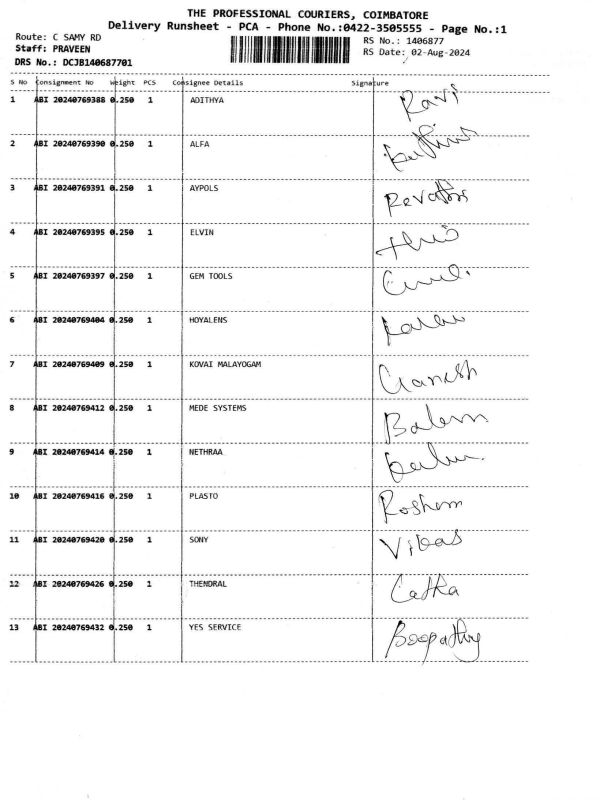 THE PROFESSIONAL COURIERS, COIMBATORE
Delivery Runsheet - PCA - Phone No.:0422-3505555 - Page No.:1
Route: C SAMY RD
RS No.: 1406877
Staff: PRAVEEN
RS Date: 02-Aug-2024
DRS No.: DCJB140687701
S No Consignment No Weight PCS Consignee Details Signature
1 ABI 20240769388 0.250 1 ADITHYA Ravi
2 ABI 20240769390 0.250 1 ALFA
3 ABI 20240769391 0.250 1 AYPOLS Revathi
4 ABI 20240769395 0.250 1 ELVIN
5 ABI 20240769397 0.250 1 GEM TOOLS
6 ABI 20240769404 0.250 1 HOYALENS
7 ABI 20240769409 0.250 1 KOVAI MALAYOGAM Ganesh
8 ABI 20240769412 0.250 1 MEDE SYSTEMS
9 ABI 20240769414 0.250 1 NETHRAA
10 ABI 20240769416 0.250 1 PLASTO
11 ABI 20240769420 0.250 1 SONY
12 ABI 20240769426 0.250 1 THENDRAL
13 ABI 20240769432 0.250 1 YES SERVICE Boopathy